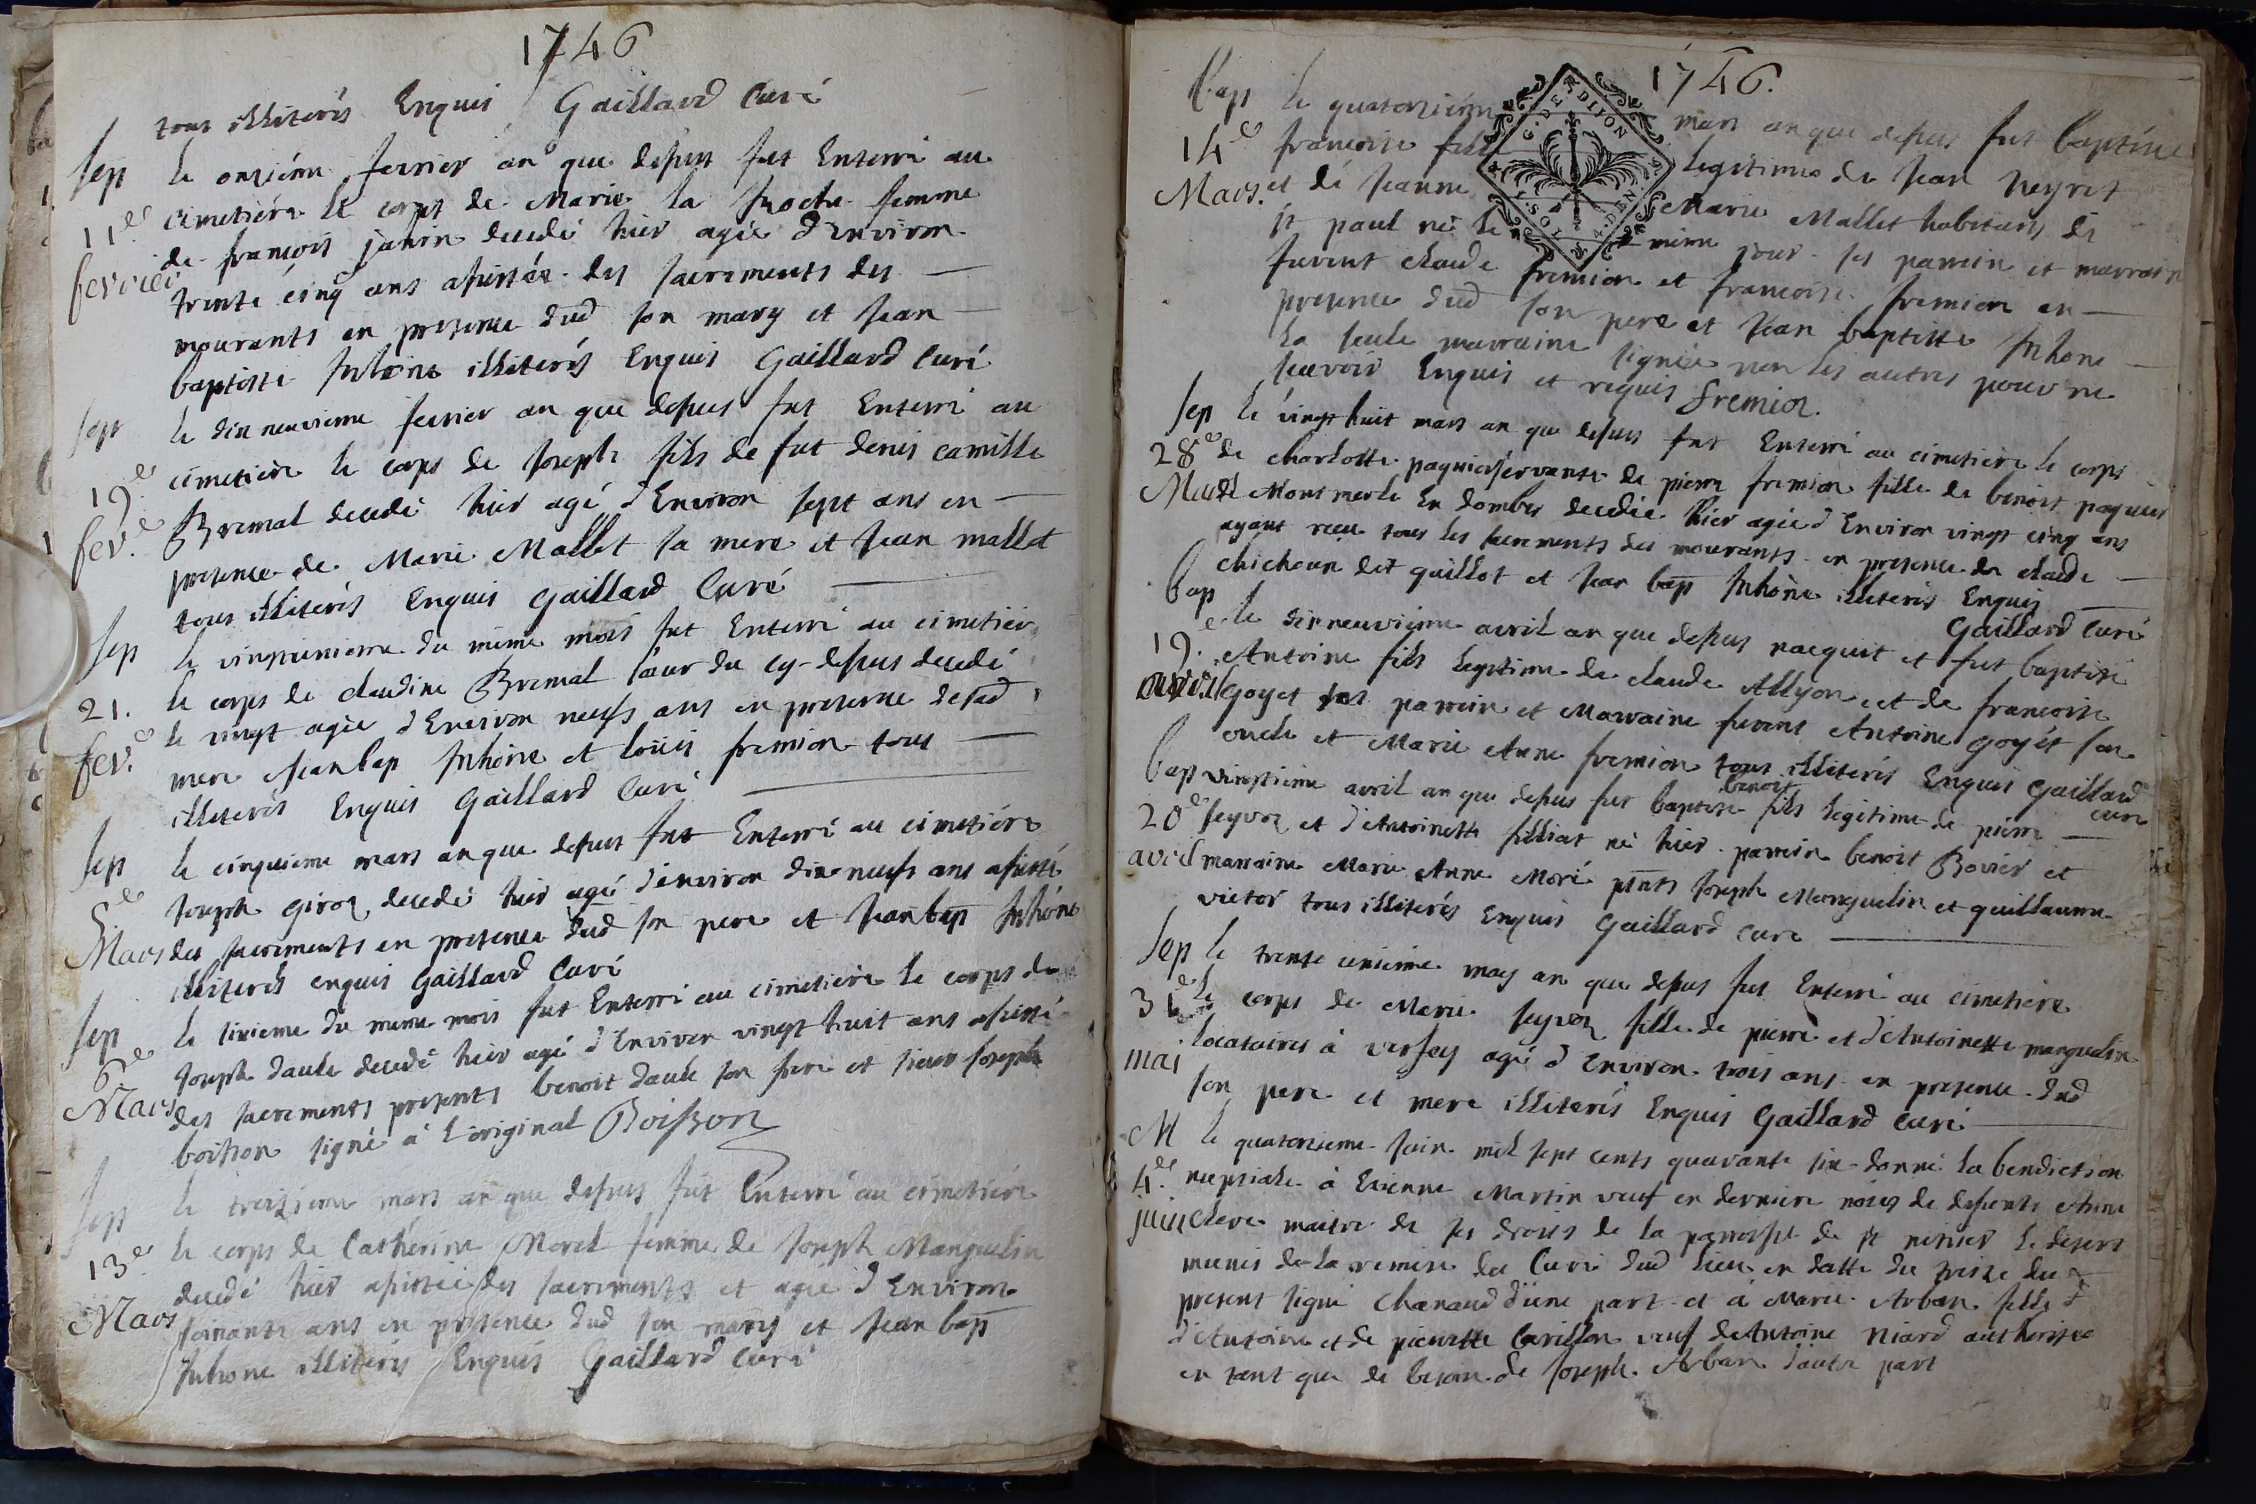 1746
tous illiterés Enquis Gaillard Curé
Sep le onziéme fevrier an que dessus fut Enterré au
11e. cimetiére le corps de Marie la Roche femme
fevrier de françois janin decedé hier agée d'Environ
trente cinq ans assistée des sacrements des
mourants en presence dud son mary et Jean
baptiste illiterés Enquis Gaillard Curé
Sep le dix neuvieme fevrier an que dessus fut Enterré au
19e. cimetiere le corps de Joseph fils de fut denis camille
fev.e Bremal decedé hier agé d'Environ sept ans en
presence de Marie Mallet sa mere et Jean mallet
tous illiterés Enquis Gaillard Curé
Sep le vingtunieme du même mois fut Enterré au cimetier
21. le corps de claudine Bremal sœur du cy-dessus decedé
fev.e le vingt agée d'Environ neufs ans en presence de sad
mere Jean bap et loüis fremion tous
illiterés Enquis Gaillard Curé
Sep le cinquieme mars an que dessus fut Enterré au cimetiére
5e Joseph giron decedé hier agé d'environ dix neufs ans assisté
Mars des sacrements en presence dud son pere et Jean bap
illiterés enquis Gaillard Curé
Sep le sixieme du meme mois fut Enterré au cimetiere le corps de
6e Joseph daule decedé hier agé d'Environ vingt huit ans assisté
Mars des sacrements presents benoit daule son frere et sieur Joseph
boisson signé à l'original Boisson
Sep le treizieme mars an que dessus fut Enterré au cimetiére
13e le corps de Catherine Morel femme de Joseph Manguelin
decedé hier assistée des sacrements et agée d'Environ
Mars soixante ans en presence dud son mary et Jean bap
illiterés Enquis Gaillard Curé
1746.
Bap le quatorziéme mars an que dessus fut baptisée
14e francoise fille legitime de Jean Neyret
Mars. et de Jeanne Marie Mallet habitants de
st paul né le même jour. ses parrein et marraine
furent claude fremion et francoise fremion en
presence dud son pere et Jean baptiste
la seule marraine signée non les autres pour ne
scavoir Enquis et requis fremion.
G. DE DIJON
SOL. 4. DEN.
Sep le vingt huit mars an que dessus fut Enterré au cimetiere le corps
28e de charlotte paquier servante de pierre fremion fille de benoit paquier
Mars de Montmerle En dombes decedée hier agée d'Environ vingt cinq ans
ayant recu tous les sacrements des mourants en presence de claude
chicheux dit guillot et Jean bap illiterés Enquis
Gaillard Curé
bap le dixneuviéme avril an que dessus nacquit et fut baptisé
19.e Antoine fils legitime de claude Allyon et de francoise
avril Goyet ses parrein et Marraine furent Antoine goyet son
oncle et Marie Anne fremion tous illiterés Enquis Gaillard
curé
bap vingtieme avril an que dessus fut baptisé benoit fils legitime de pierre
20e seyvon et d'Antoinette filliat né hier parrein benoit Bovier et
avril marraine Marie Anne Moré pnts Joseph Monguelin et guillaume
victor tous illiterés Enquis Gaillard curé
Sep le trente unieme may an que dessus fut Enterré au cimetiere
31e le corps de Marie seyvon fille de pierre et d'Antoinette manguelin
mai locataires à versey agé d'Environ trois ans en presence dud
son pere et mere illiterés Enquis Gaillard Curé
M le quatorzieme Juin mil sept cents quarante six donné la bendiction
4.e nuptiale à Etienne Martin veuf en derniere noces de defunte Anne
juin clere maitre de ses droits de la paroisse de st nizier le desert
munis de la remise du Curé dud lieu en datte du treize du
present signé Chanaud d'une part et à Marie Arban fille
d'Antoine et de pierrette Carillon veuf de Antoine Niard authorisée
en tant que de besoin de Joseph Arban d'autre part